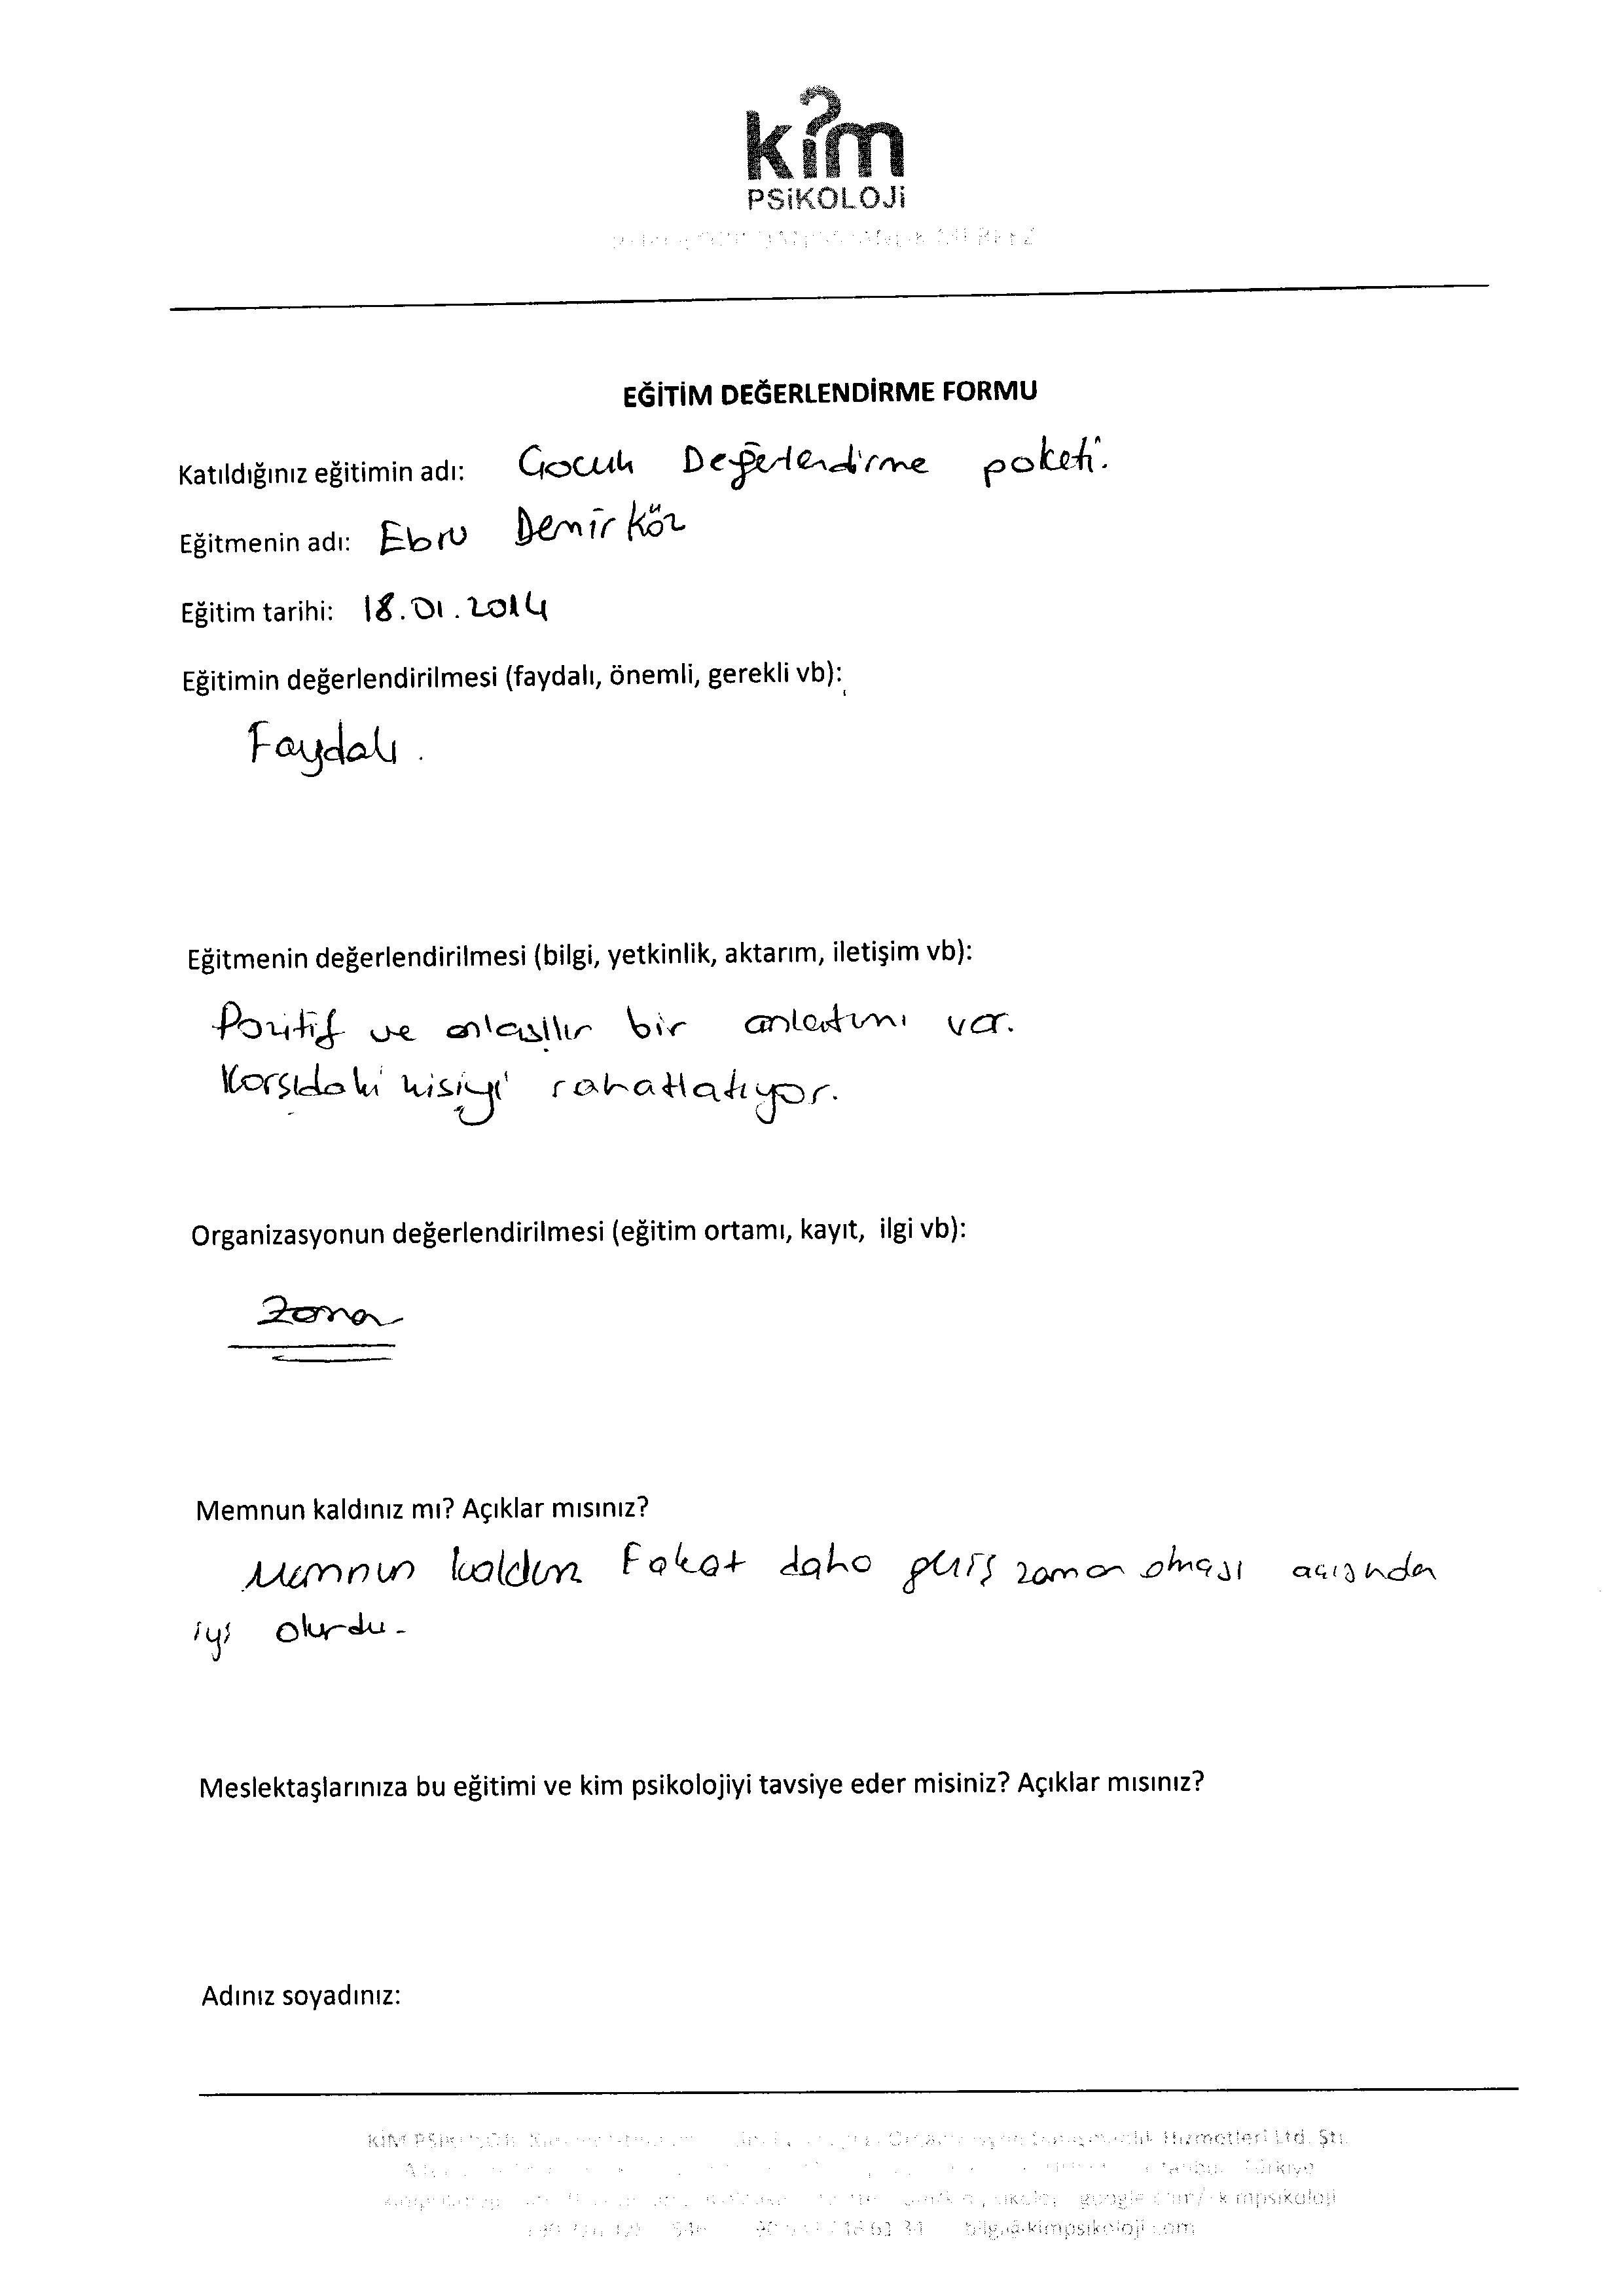 kim
PSiKOLOJi
EĞİTİM DEĞERLENDİRME FORMU
Katıldığınız eğitimin adı: Çocuk Değerlendirme paketi.
Eğitmenin adı: Ebru Demirköz
Eğitim tarihi: 18.01.2014
Eğitimin değerlendirilmesi (faydalı, önemli, gerekli vb):
Faydalı.
Eğitmenin değerlendirilmesi (bilgi, yetkinlik, aktarım, iletişim vb):
Pozitif ve anlaşılır bir anlatımı var.
Karşıdaki kişiyi rahatlatıyor.
Organizasyonun değerlendirilmesi (eğitim ortamı, kayıt, ilgi vb):
Memnun kaldınız mı? Açıklar mısınız?
Memnun kaldım Fakat daha geniş zaman olması açısından
iyi olurdu.
Meslektaşlarınıza bu eğitimi ve kim psikolojiyi tavsiye eder misiniz? Açıklar mısınız?
Adınız soyadınız:
Hizmetleri Ltd. Şti.
Türkiye
bilgi@kimpsikoloji.com